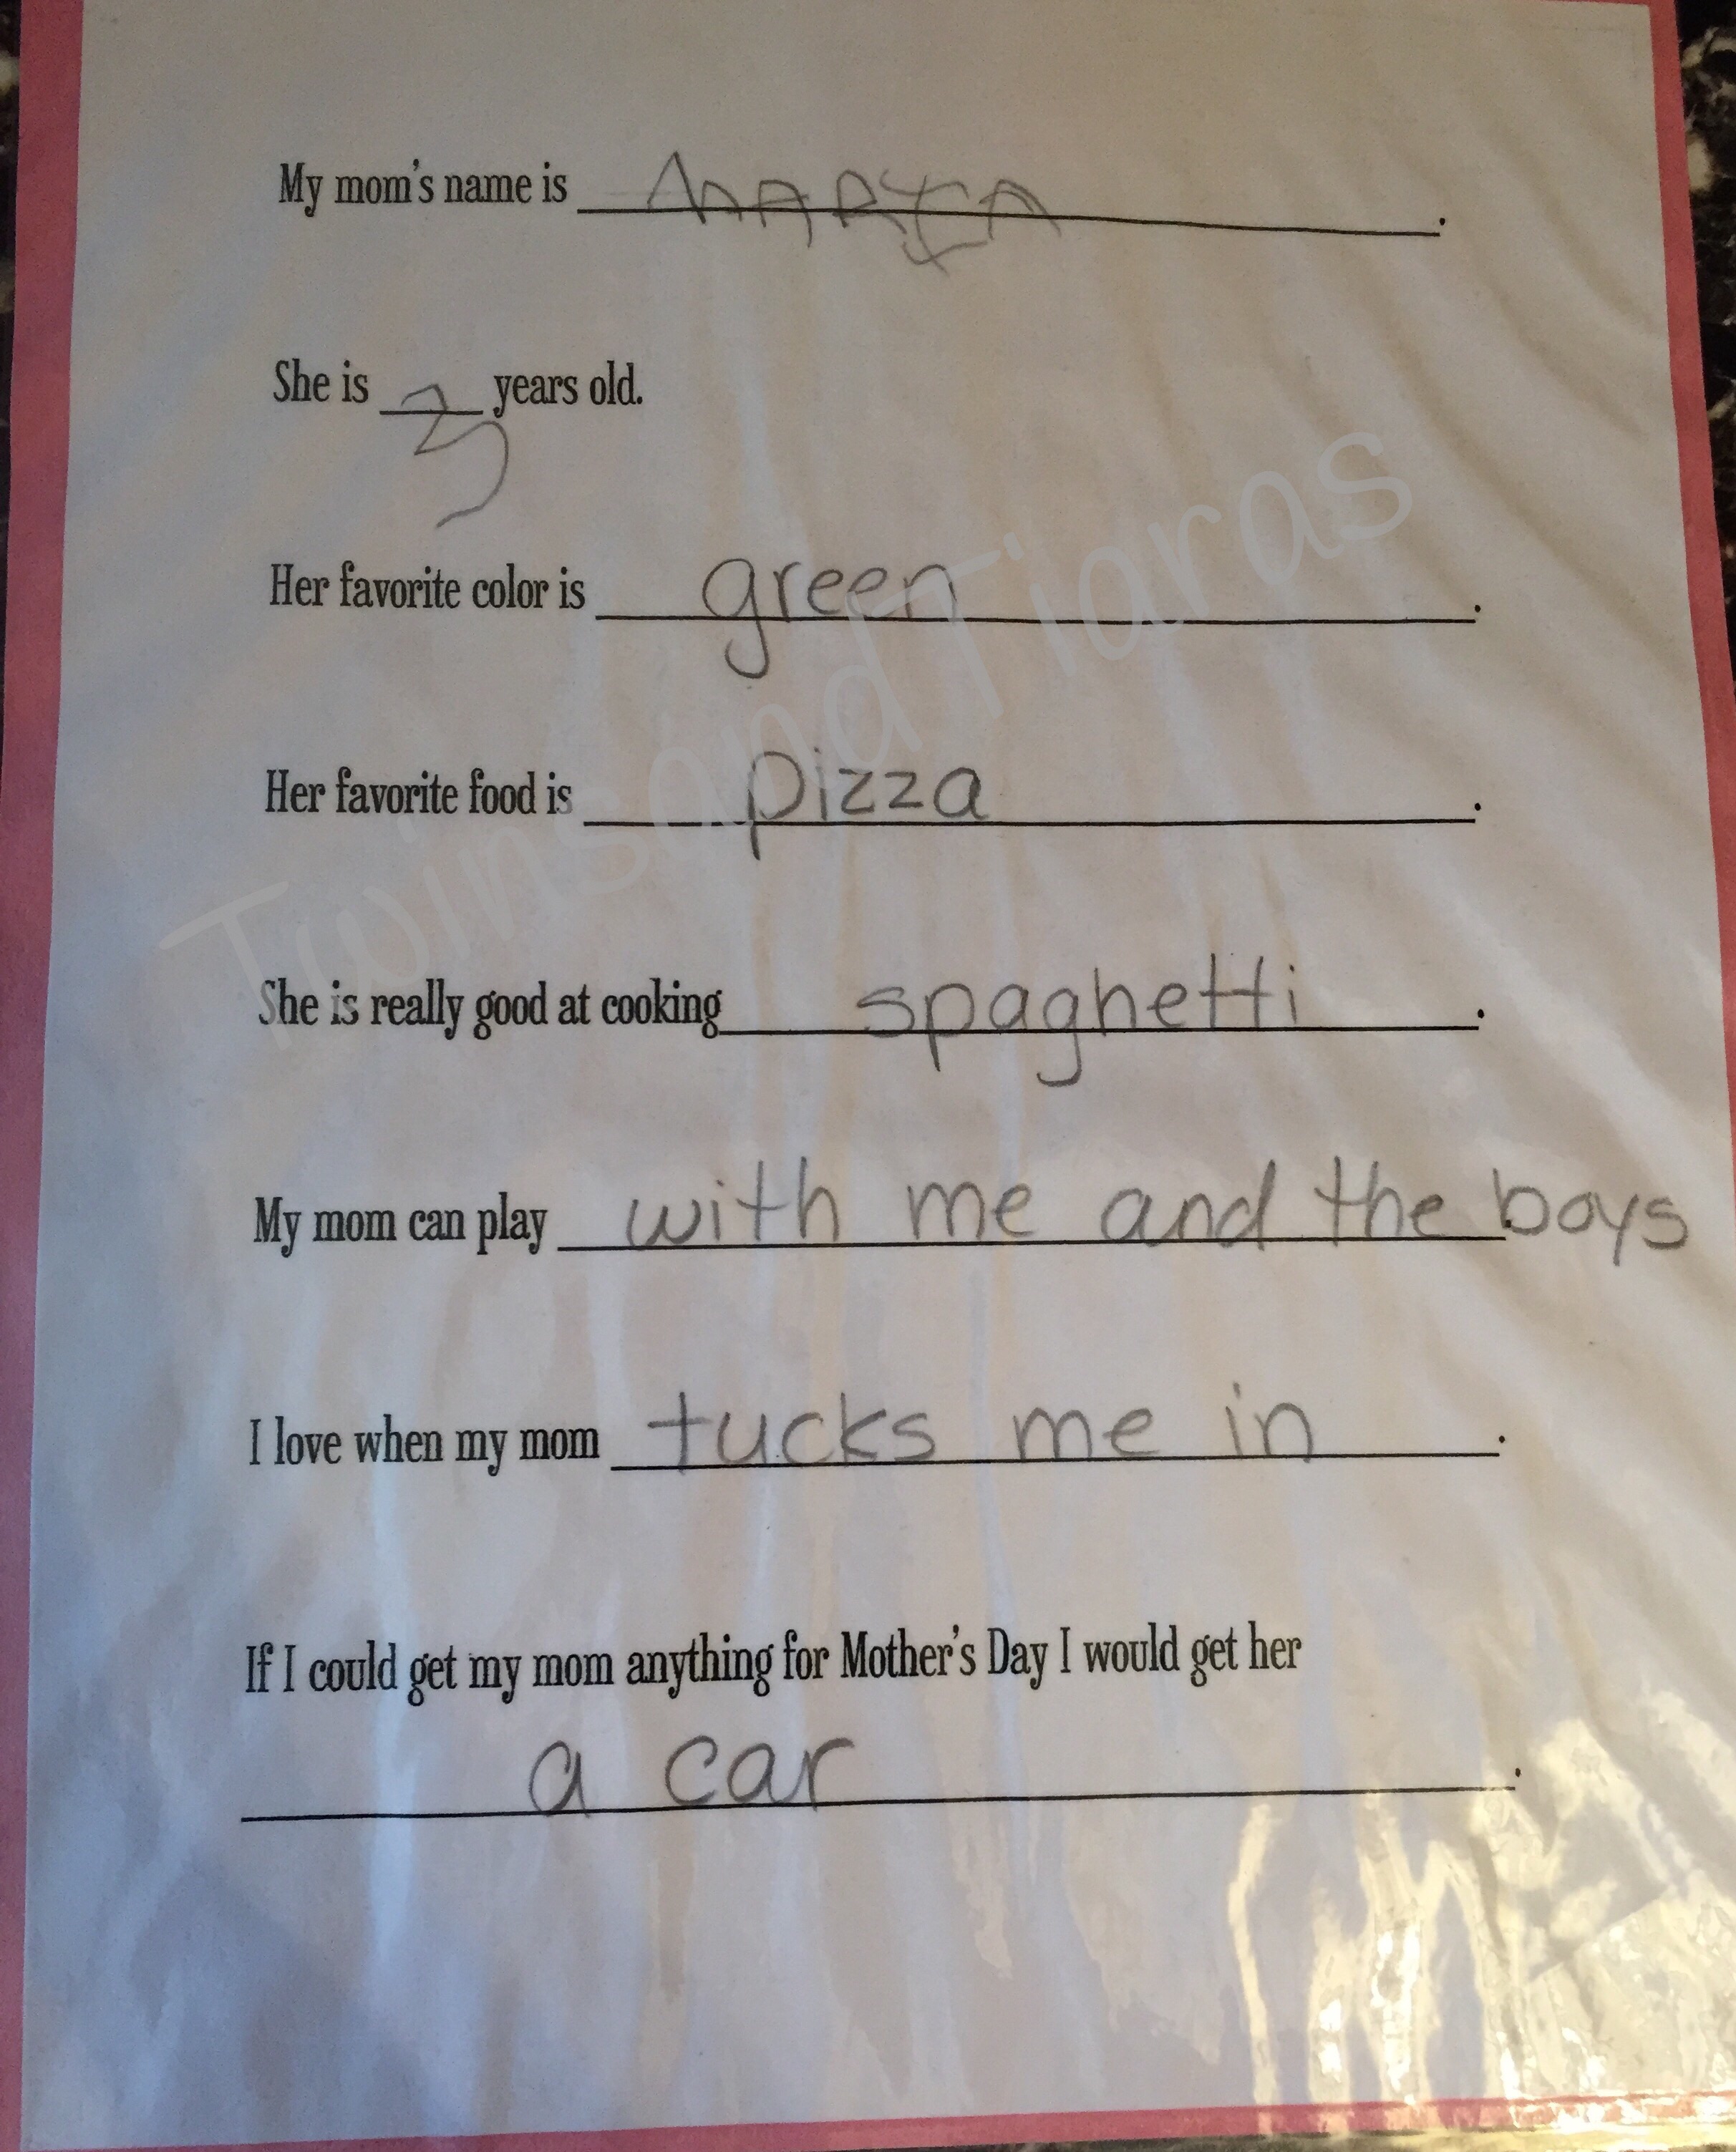 My mom's name is MARIA.
She is 3 years old.
Her favorite color is green.
Her favorite food is pizza.
She is really good at cooking spaghetti.
My mom can play with me and the boys
I love when my mom tucks me in.
If I could get my mom anything for Mother's Day I would get her
a car.
TwinsandTiaras